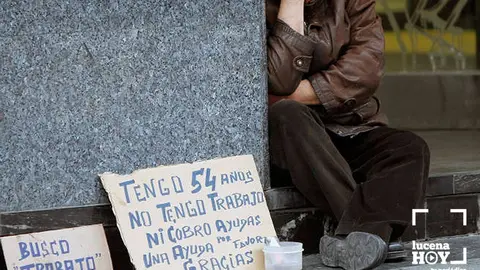 TENGO 54 AÑOS
NO TENGO TRABAJO
NI COBRO AYUDAS
UNA AYUDA POR FAVOR
GRACIAS
BUSCO
"TRABAJO"
lucena
HOY